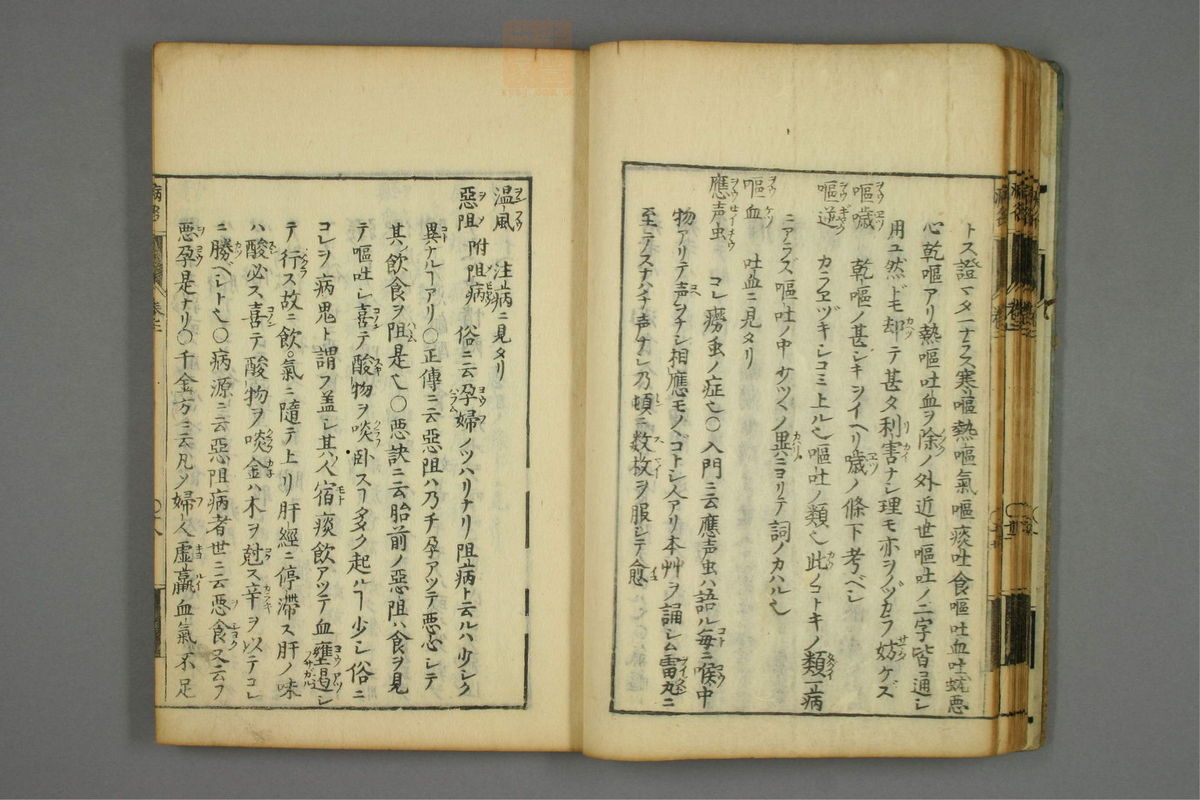 トス證マタ一ナラス寒嘔熱嘔氣嘔痰吐食嘔吐血吐蚘悪
心乾嘔アリ熱嘔吐血ヲ除ノ外近世嘔吐ノ二字皆通シ
用ユ然ドモ却テ甚タ利害ナシ理モ亦ヲノヅカラ妨ケズ
嘔噦 乾嘔ノ甚シキヲイヘリ噦ノ條下考ベシ
嘔逆 カラヱヅキシコミ上ル也嘔吐ノ類也此ノコトキノ類一病
ニアラズ嘔吐ノ中サマ〱ノ異ニヨリテ詞ノカハル也
嘔血 吐血ニ見タリ
應声虫 コレ癆虫ノ症也〇入門ニ云應声虫ハ語ル毎ニ喉中
物アリテ声ヲナシ相應モノヽゴトシ人アリ本艸ヲ誦シム雷丸ニ
至テスナハチ声ナシ乃頓ニ数枚ヲ服シテ愈
温風 注病ニ見タリ
惡阻 附阻病 俗ニ云孕婦ノツハリナリ阻病ト云ルハ少シク
異ナルヿアリ〇正傳ニ云惡阻ハ乃チ孕アツテ悪心シテ
其飲食ヲ阻是也〇悪訣ニ云胎前ノ惡阻ハ食ヲ見
テ嘔吐シ喜テ酸物ヲ啖卧スヿ多ク起ルヿ少シ俗ニ
コレヲ病鬼ト謂フ盖シ其人宿痰飲アツテ血壅遏シ
テ行ス故ニ飲。氣ニ隨テ上リ肝經ニ停滯ス肝ノ味
ハ酸必ス喜テ酸物ヲ啖金ハ木ヲ尅ス辛ヲ以テコレ
ニ勝ベシト也〇病源ニ云惡阻病者世ニ云悪食又云フ
悪孕是ナリ〇千金方ニ云凡ソ婦人虚羸血氣不足